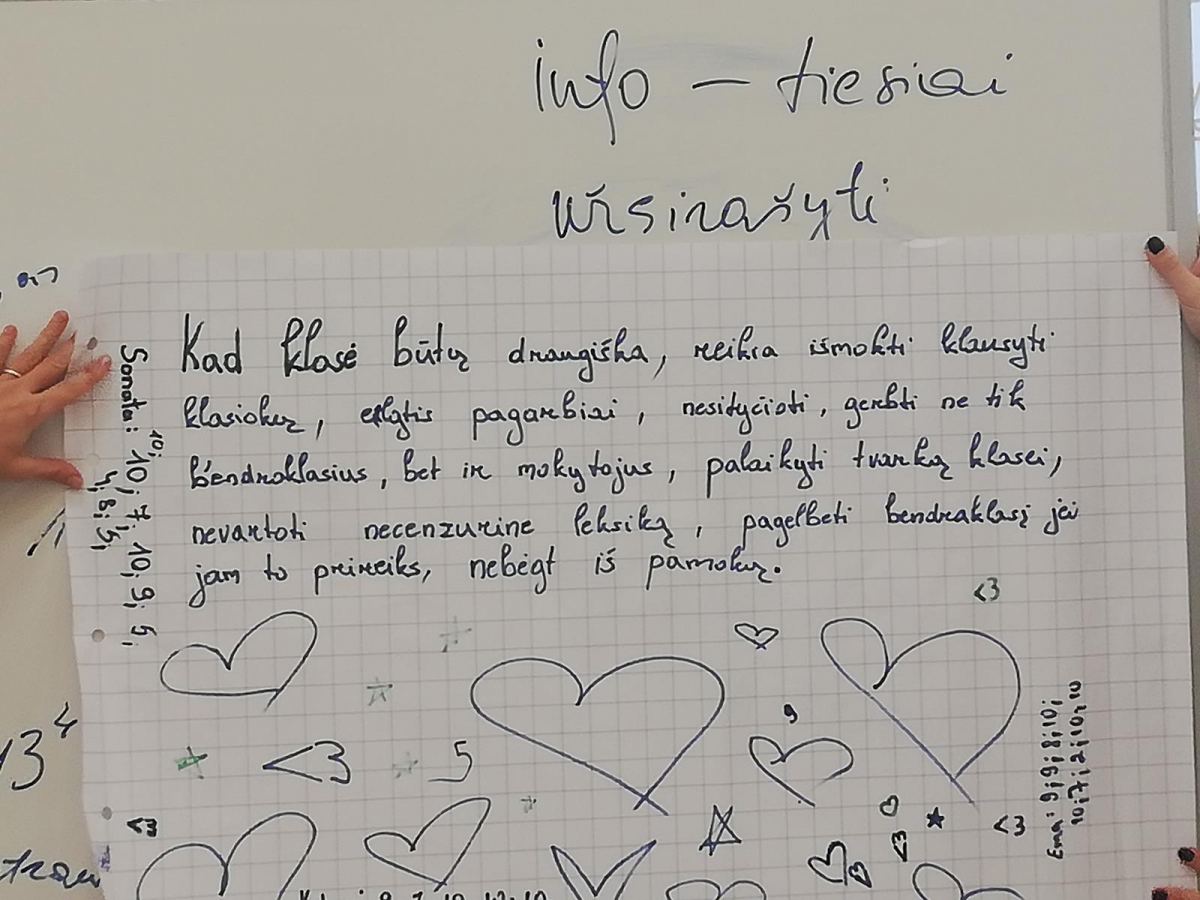 info – tiesiai
užsirašyti
Kad klasė būtų draugiška, reikia išmokti klausyti
klasiokų, elgtis pagarbiai, nesityčioti, gerbti ne tik
bendroklasius, bet ir mokytojus, palaikyti tvarką klasei,
nevartoti necenzurine leksiką, pagelbeti bendraklasį jei
jam to prireiks, nebėgt iš pamokų.
Sonata: 10; 7; 10; 9; 5;
10;
4; 8; 5;
<3
9
<3 5
Ema: 9; 9; 8; 10;
10; 7; 2; 10; 10
13⁴
<3
<3
<3